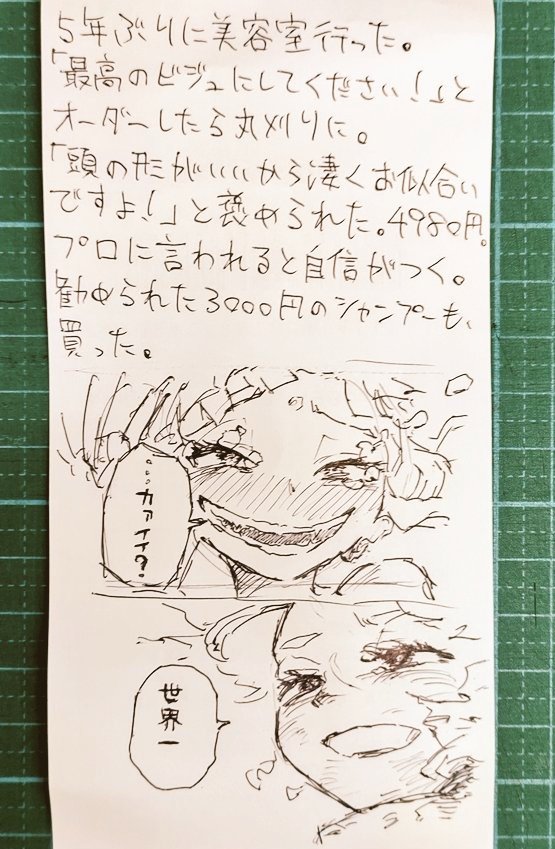 5年ぶりに美容室行った。
「最高のビジュにしてください!」と
オーダーしたら丸刈りに。
「頭の形がいいから凄くお似合い
ですよ!」と褒められた。4980円。
プロに言われると自信がつく。
勧められた3000円のシャンプーも、
買った。
…カァイイ?
世界一